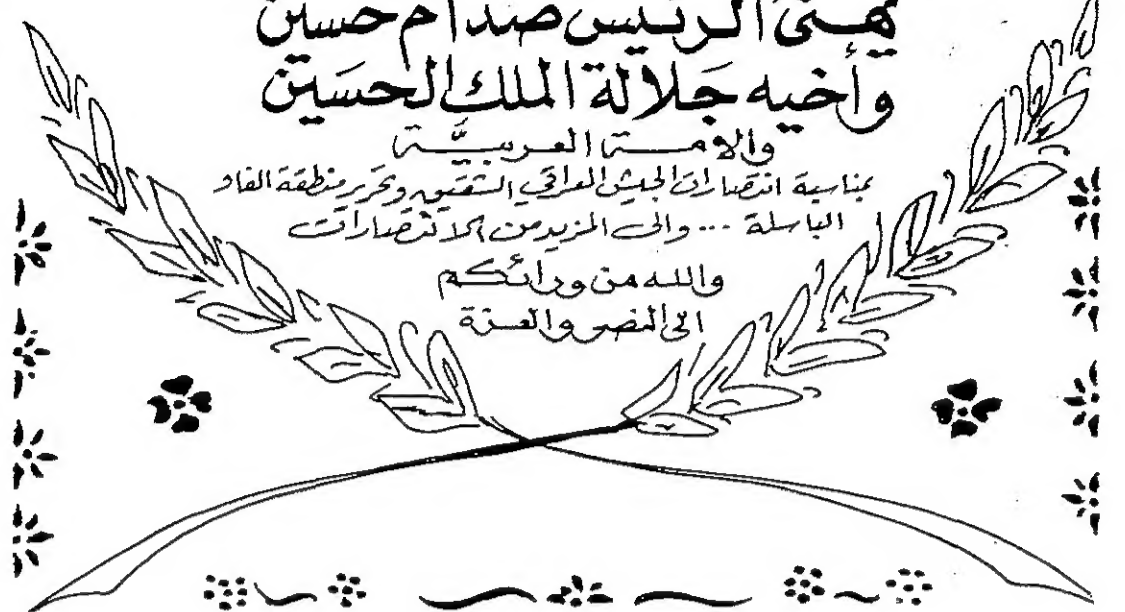 يهنئ الرئيس صدام حسين
وأخيه جلالة الملك الحسين
والامة العربية
بمناسبة انتصارات الجيش العراقي الشقيق وتحرير منطقة الفاو
الباسلة ... والى المزيد من الانتصارات
والله من ورائكم
الى النصر والعزة